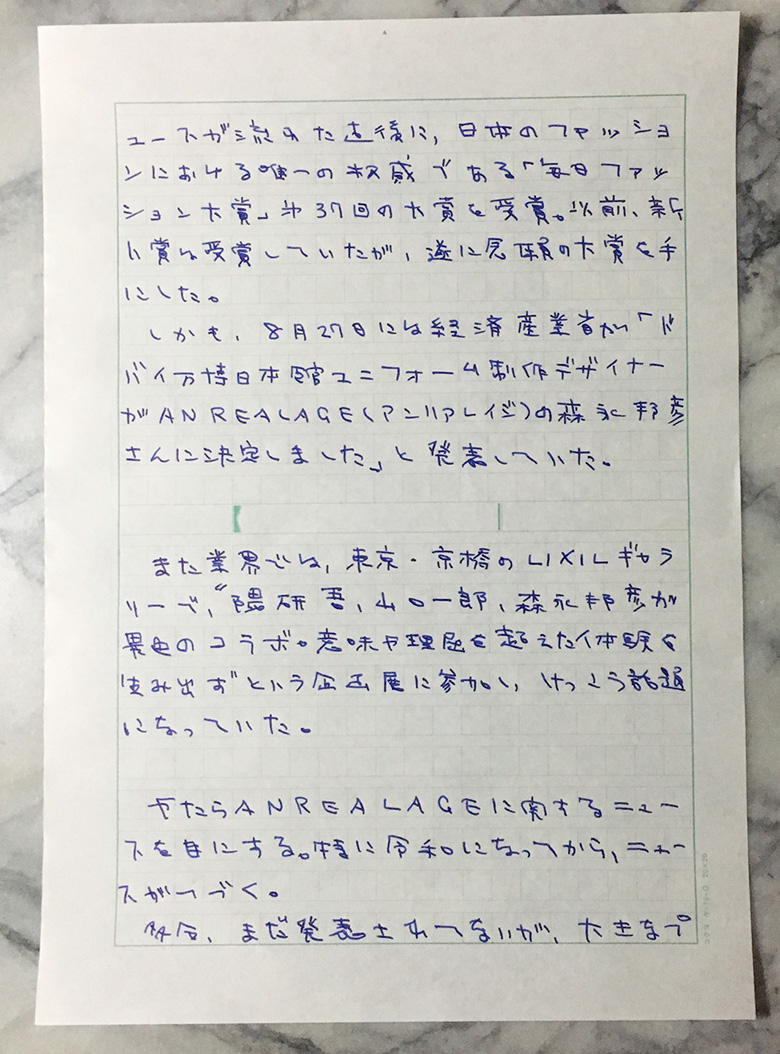 ュースが流れた直後に、日本のファッショ
ンにおける唯一の権威である「毎日ファッ
ション大賞」第37回の大賞を受賞。以前、新
人賞は受賞していたが、遂に念願の大賞を手
にした。
しかも、8月27日には経済産業省が「ド
バイ万博日本館ユニフォーム制作デザイナー
がANREALAGE(アンリアレイジ)の森永邦彦
さんに決定しました」と発表していた。
また業界では、東京・京橋のLIXILギャラ
リーで、“隈研吾、山口一郎、森永邦彦が
異色のコラボ。意味や理屈を超えた体験を
生み出す”という企画展に参加し、けっこう話題
になっていた。
やたらANREALAGEに関するニュー
スを目にする。特に令和になってから、ニュー
スがつづく。
多分、まだ発表されてないが、大きなプ